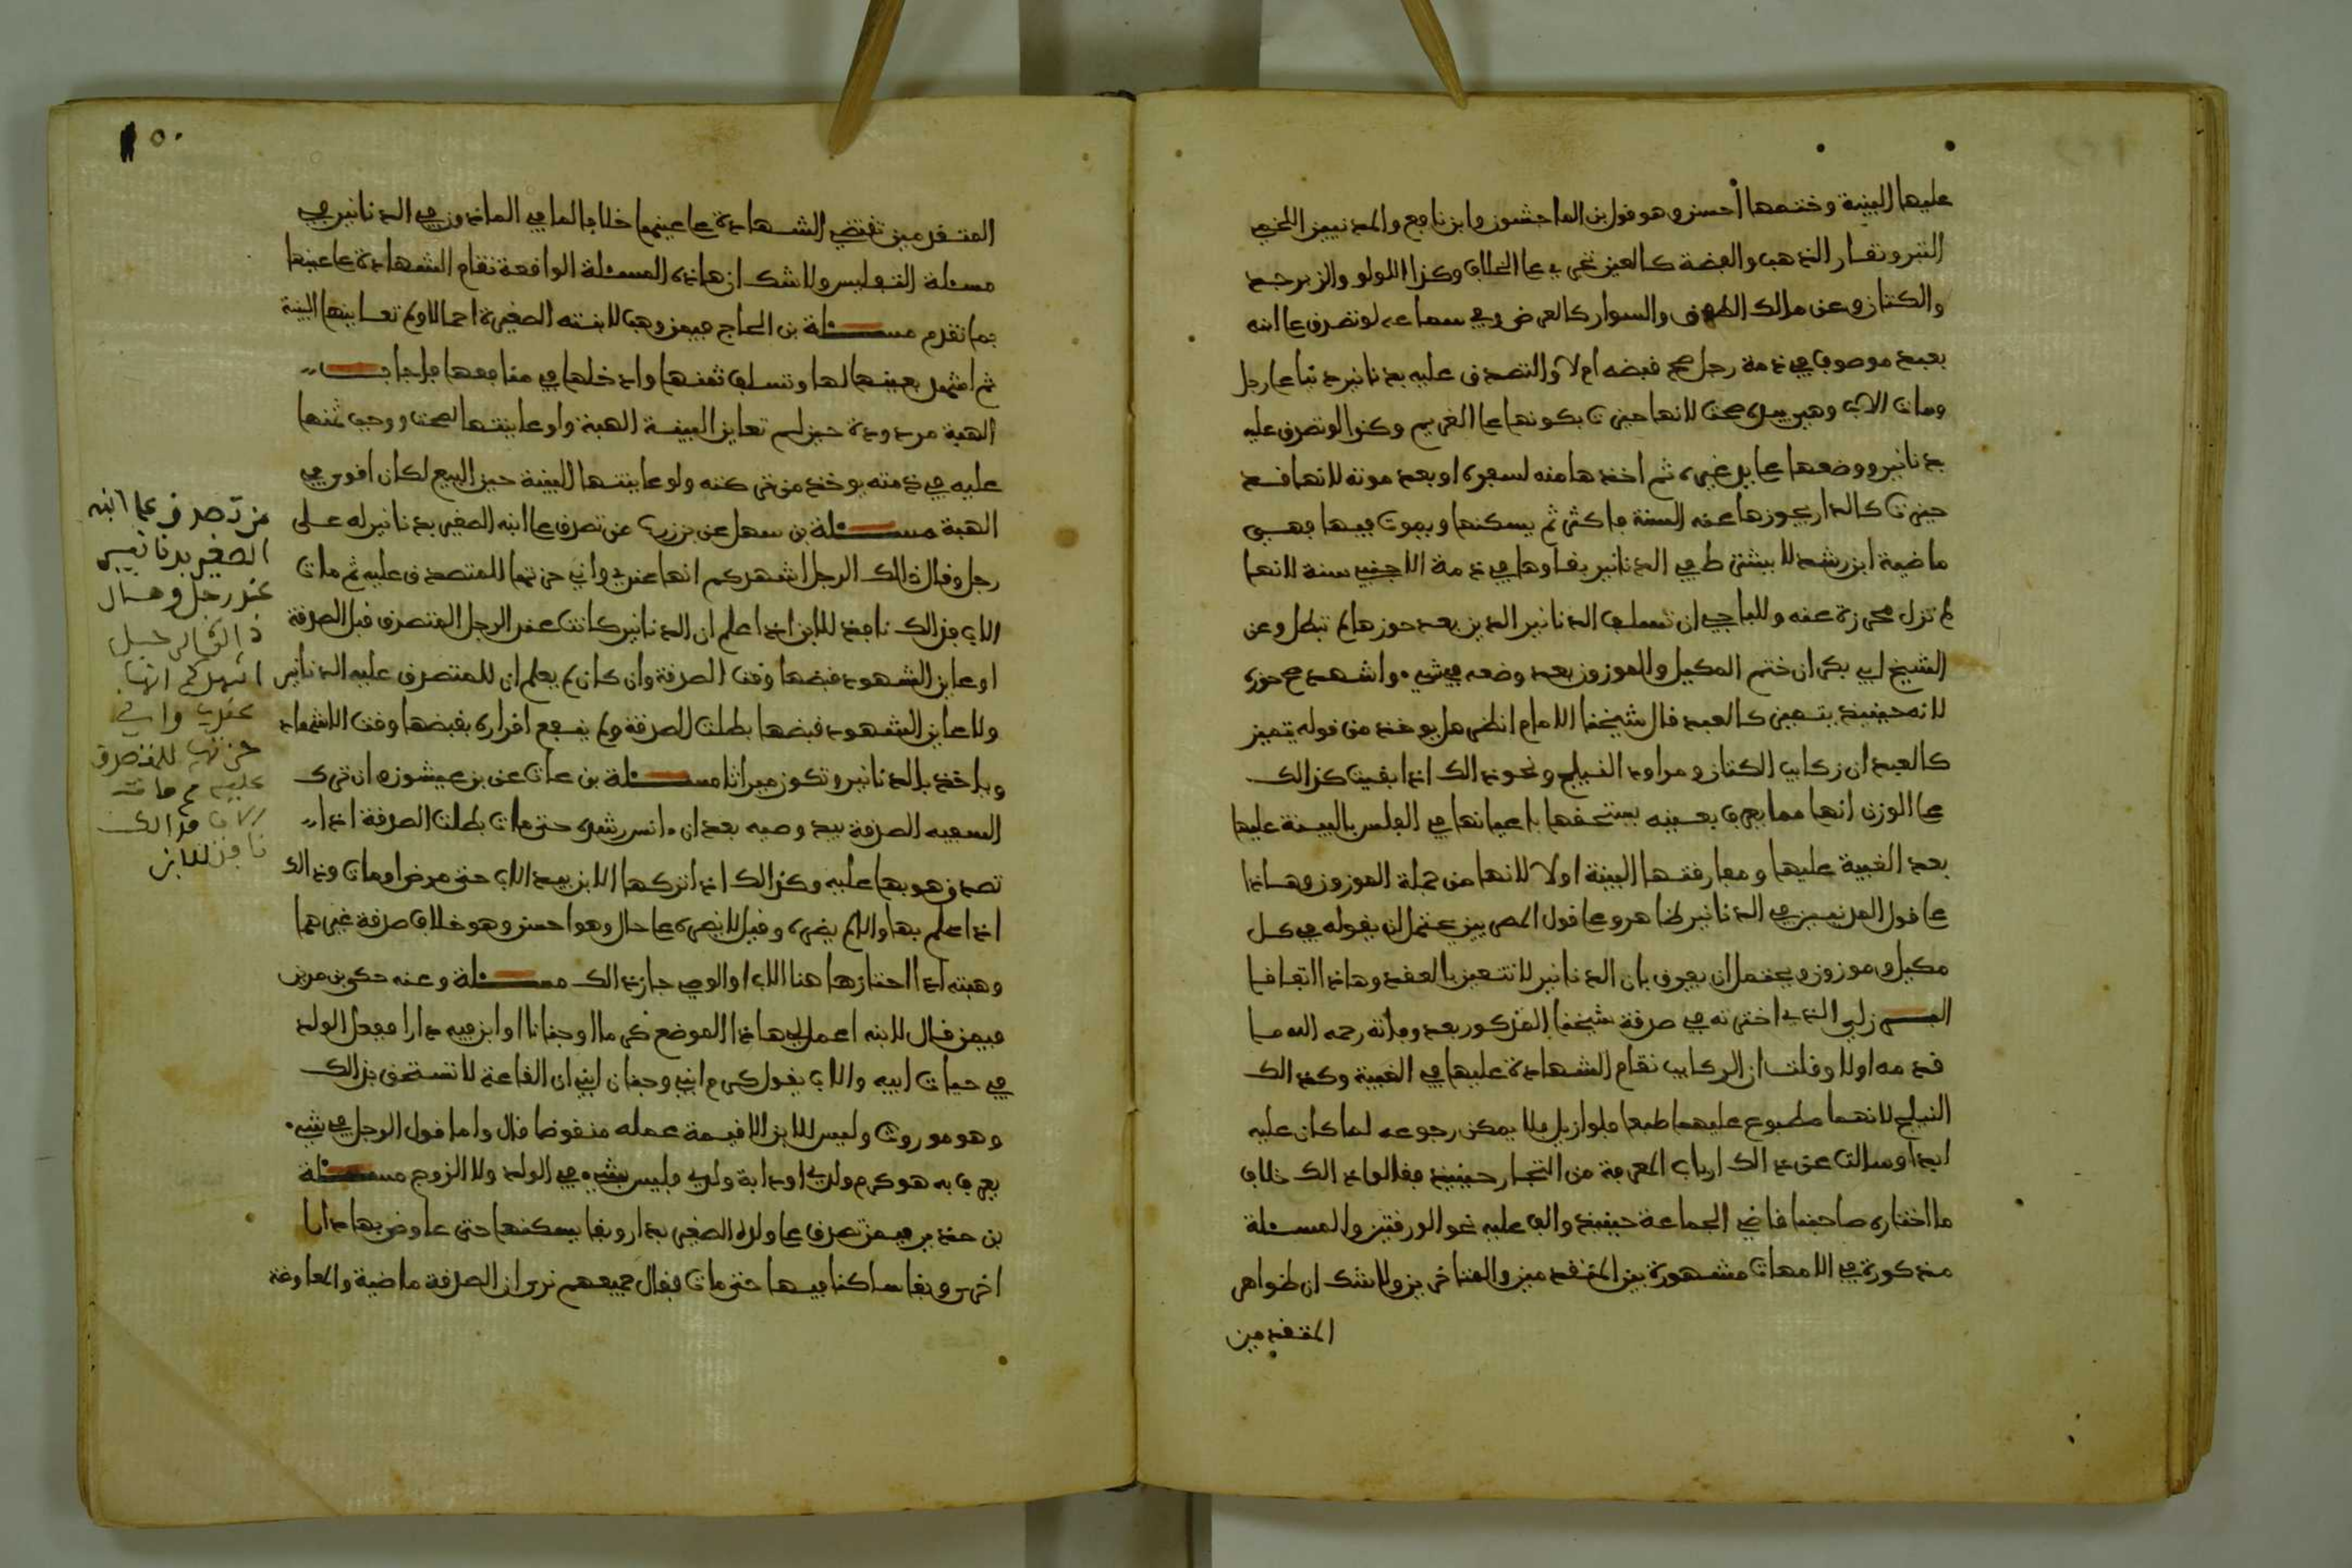 عليها البينة وختمها أحسن وهو قول ابن الماجشون وابن نافع والمدنيين اللخمي
التبر ونقار الذهب والفضة كالعين تجري على الخلاف وكذا اللولو والزبرجد
والكتان وعن مالك الطوق والسوار كالعرض وفي سماعه لو تصدق على ابنه
بعبد موصوف في ذمة رجل صح قبضه ام لا والتصدق عليه بدنانير دينا على رجل
ومات الاب وهي بيده صحت لانها حيزت بكونها على الغريم وكذا لو تصدق عليه
بدنانير ووضعها على يد غيره ثم اخذها منه لسفره او بعد موته لانها قد
حيزت كالدار يحوزها عنه السنة فاكثر ثم يسكنها ويموت فيها فهي
ماضية ابن رشد لا يشترط في الدنانير بقاوها في ذمة الاجنبي سنة لانها
لم تزل محرزة عنه وللباجي ان تسلف الدنانير الدين بعد حوزها لم تبطل وعن
الشيخ ابي بكر ان ختم المكيل والموزون بعد وضعه في شيء واشهد صح حوزه
لانه حينيذ يتعين كالعبد قال شيخنا الامام انظر هل يوخذ من قوله يتميز
كالعبد ان ركايب الكتان ومراود النيلج ونحو ذالك اذا بقيت كذالك
على الوزن انها مما يعرف بعينه يستحقها باعيانها في الفلس بالبينة عليها
بعد الغيبة عليها ومفارقتها البينة اولا لانها من جملة الموزون وهاذا
على قول المدنيين في الدنانير ظاهر وعلى قول المصريين يحتمل ان يقوله في كل
مكيل وموزون ويحتمل ان يعرف بان الدنانير لا تتعين بالعقد وهاذا اتفاقا
البرزلي الذي اخترته في صدقة شيخنا المذكور بعد وفاته رحمه الله ما
قدمه اولا وقلت ان الركايب تقام الشهادة عليها في الغيبة وكذالك
النيلج لانهما مطبوع عليهما طبعا فلو ازيل فلا يمكن رجوعه لما كان عليه
ابدا وسالت عن ذالك ارباب المعرفة من التجار حينيذ فقالوا ذالك خلاف
ما اختاره صاحبنا قاضي الجماعة حينيذ والف عليه نحو الورقتين والمسئلة
مذكورة في الامهات مشهورة بين المتقدمين والمتاخرين ولا شك ان ظواهر
المتقدمين
١٥٠
المتقدمين تقتضي الشهادة على عينها خلاف لما في الماذون في الدنانير في
مسئلة التفليس ولا شك ان هاذه المسئلة الواقعة تقام الشهادة على عينها
بما تقدم مسئلة بن الحاج فيمن وهب لابنته الصغيرة احمالا ولم تعاينها البينة
ثم اشهد بعينها لها وتسلف ثمنها وادخلها في منافعها فاجاب
الهبة مردودة حين لم تعاين البينة الهبة ولو عاينتها لصحت ووجب ثمنها
عليه في ذمته يوخذ من تركته ولو عاينتها البينة حين البيع لكان اقوى في
الهبة مسئلة بن سهل عن بن زرب عن تصدق على ابنه الصغير بدنانير له على
رجل وقال ذالك الرجل اشهدكم انها عندي واني حزتها للمتصدق عليه ثم مات
الاب فذالك نافذ للابن اذا علم ان الدنانير كانت عند الرجل المتصدق قبل الصدقة
او عاين الشهود قبضها وقت الصدقة وان كان لم يعلم ان للمتصدق عليه الدنانير
ولا عاين الشهود قبضها بطلت الصدقة ولم ينفع اقراره بقبضها وقت الاشهاد
وياخذ بالدنانير وتكون ميراثا مسئلة بن عات عن بن عيشون ان ترك
السفيه الصدقة بيد وصيه بعد ان انس رشده حتى مات بطلت الصدقة اذا
تصدق هو بها عليه وكذالك اذا تركها الابن بيد الاب حتى مرض او مات وذالك
اذا علم بها والا لم يضره وقيل لا يضره على حال وهو احسن وهو خلاف صدقة غيرهما
وهبته اذا اختارها هنا الاب او الوصي جاز ذالك مسئلة وعنه حكى بن مزين
فيمن قال لابنه اعمل في هاذا الموضع كرما او جنانا او ابن فيه دارا ففعل الولد
في حيات ابيه والاب يقول كرم ابني وجنان ابني ان القاعة لا تستحق بذالك
وهو موروث وليس للابن الا قيمة عمله منقوضا قال واما قول الرجل في شيء
يعرف به هو كرم ولدي او دابة ولدي فليس بشيء في الولد ولا الزوج مسئلة
بن حذير فيمن تصدق على ولده الصغير بدار وبقا يسكنها حتى عاوض بها دارا
اخرى وبقا ساكنا فيها حتى مات فقال جميعهم نرى ان الصدقة ماضية والمعاوضة
من تصدق على ابنه
الصغير بدنانير
عند رجل وقال
ذالك الرجل
اشهدكم انها
عندي واني
حزتها للمتصدق
عليه ثم مات
الاب فذالك
نافذ للابن